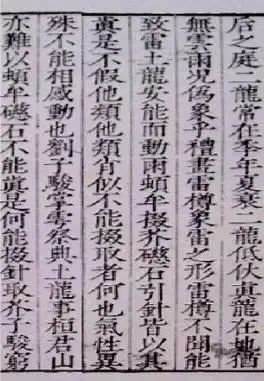 后之庭二龍常在季年夏衰二龍低伏眞龍在地猶
無雲雨況偽象乎禮畫雷樽象雷之形雷樽不聞能
致雷土龍安能而動雨頓牟掇芥礠石引針皆以其
眞是不假他類他類肖似不能掇取者何也氣性異
殊不能相感動也劉子駿掌雩祭典土龍事桓君山
亦難以頓牟礠石不能眞是何能掇針取芥子駿窮